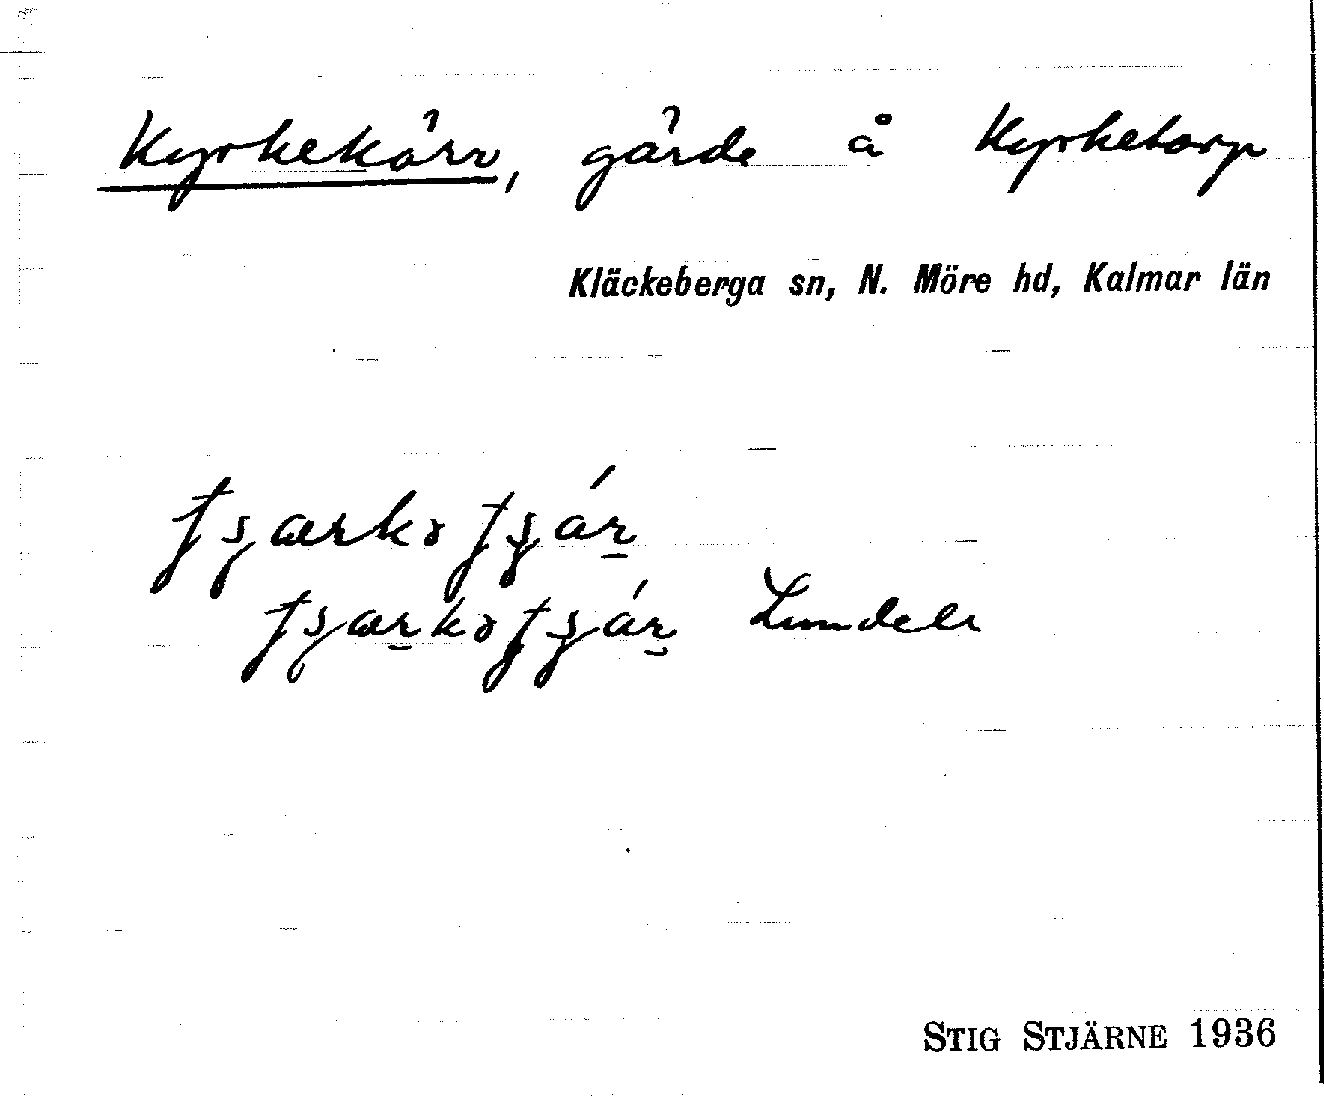 Kyrkekärr, gärde å Kyrketorp
Kläckeberga sn, N. Möre hd, Kalmar län
Lundell
STIG STJÄRNE 1936